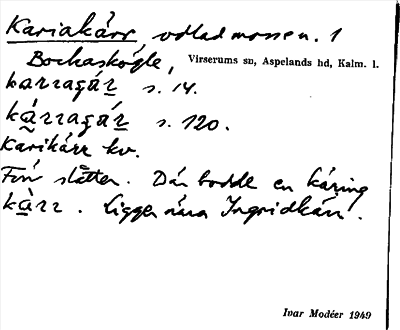 Kariakärr, odlad mosse n. 1
Bockaskögle, Virserums sn, Aspelands hd, Kalm. l.
s. 14.
s. 120.
Karikärr kv.
Förr slåtter. Där bodde en käring
kärr. Ligger nära Ingridkärr.
Ivar Modéer 1949